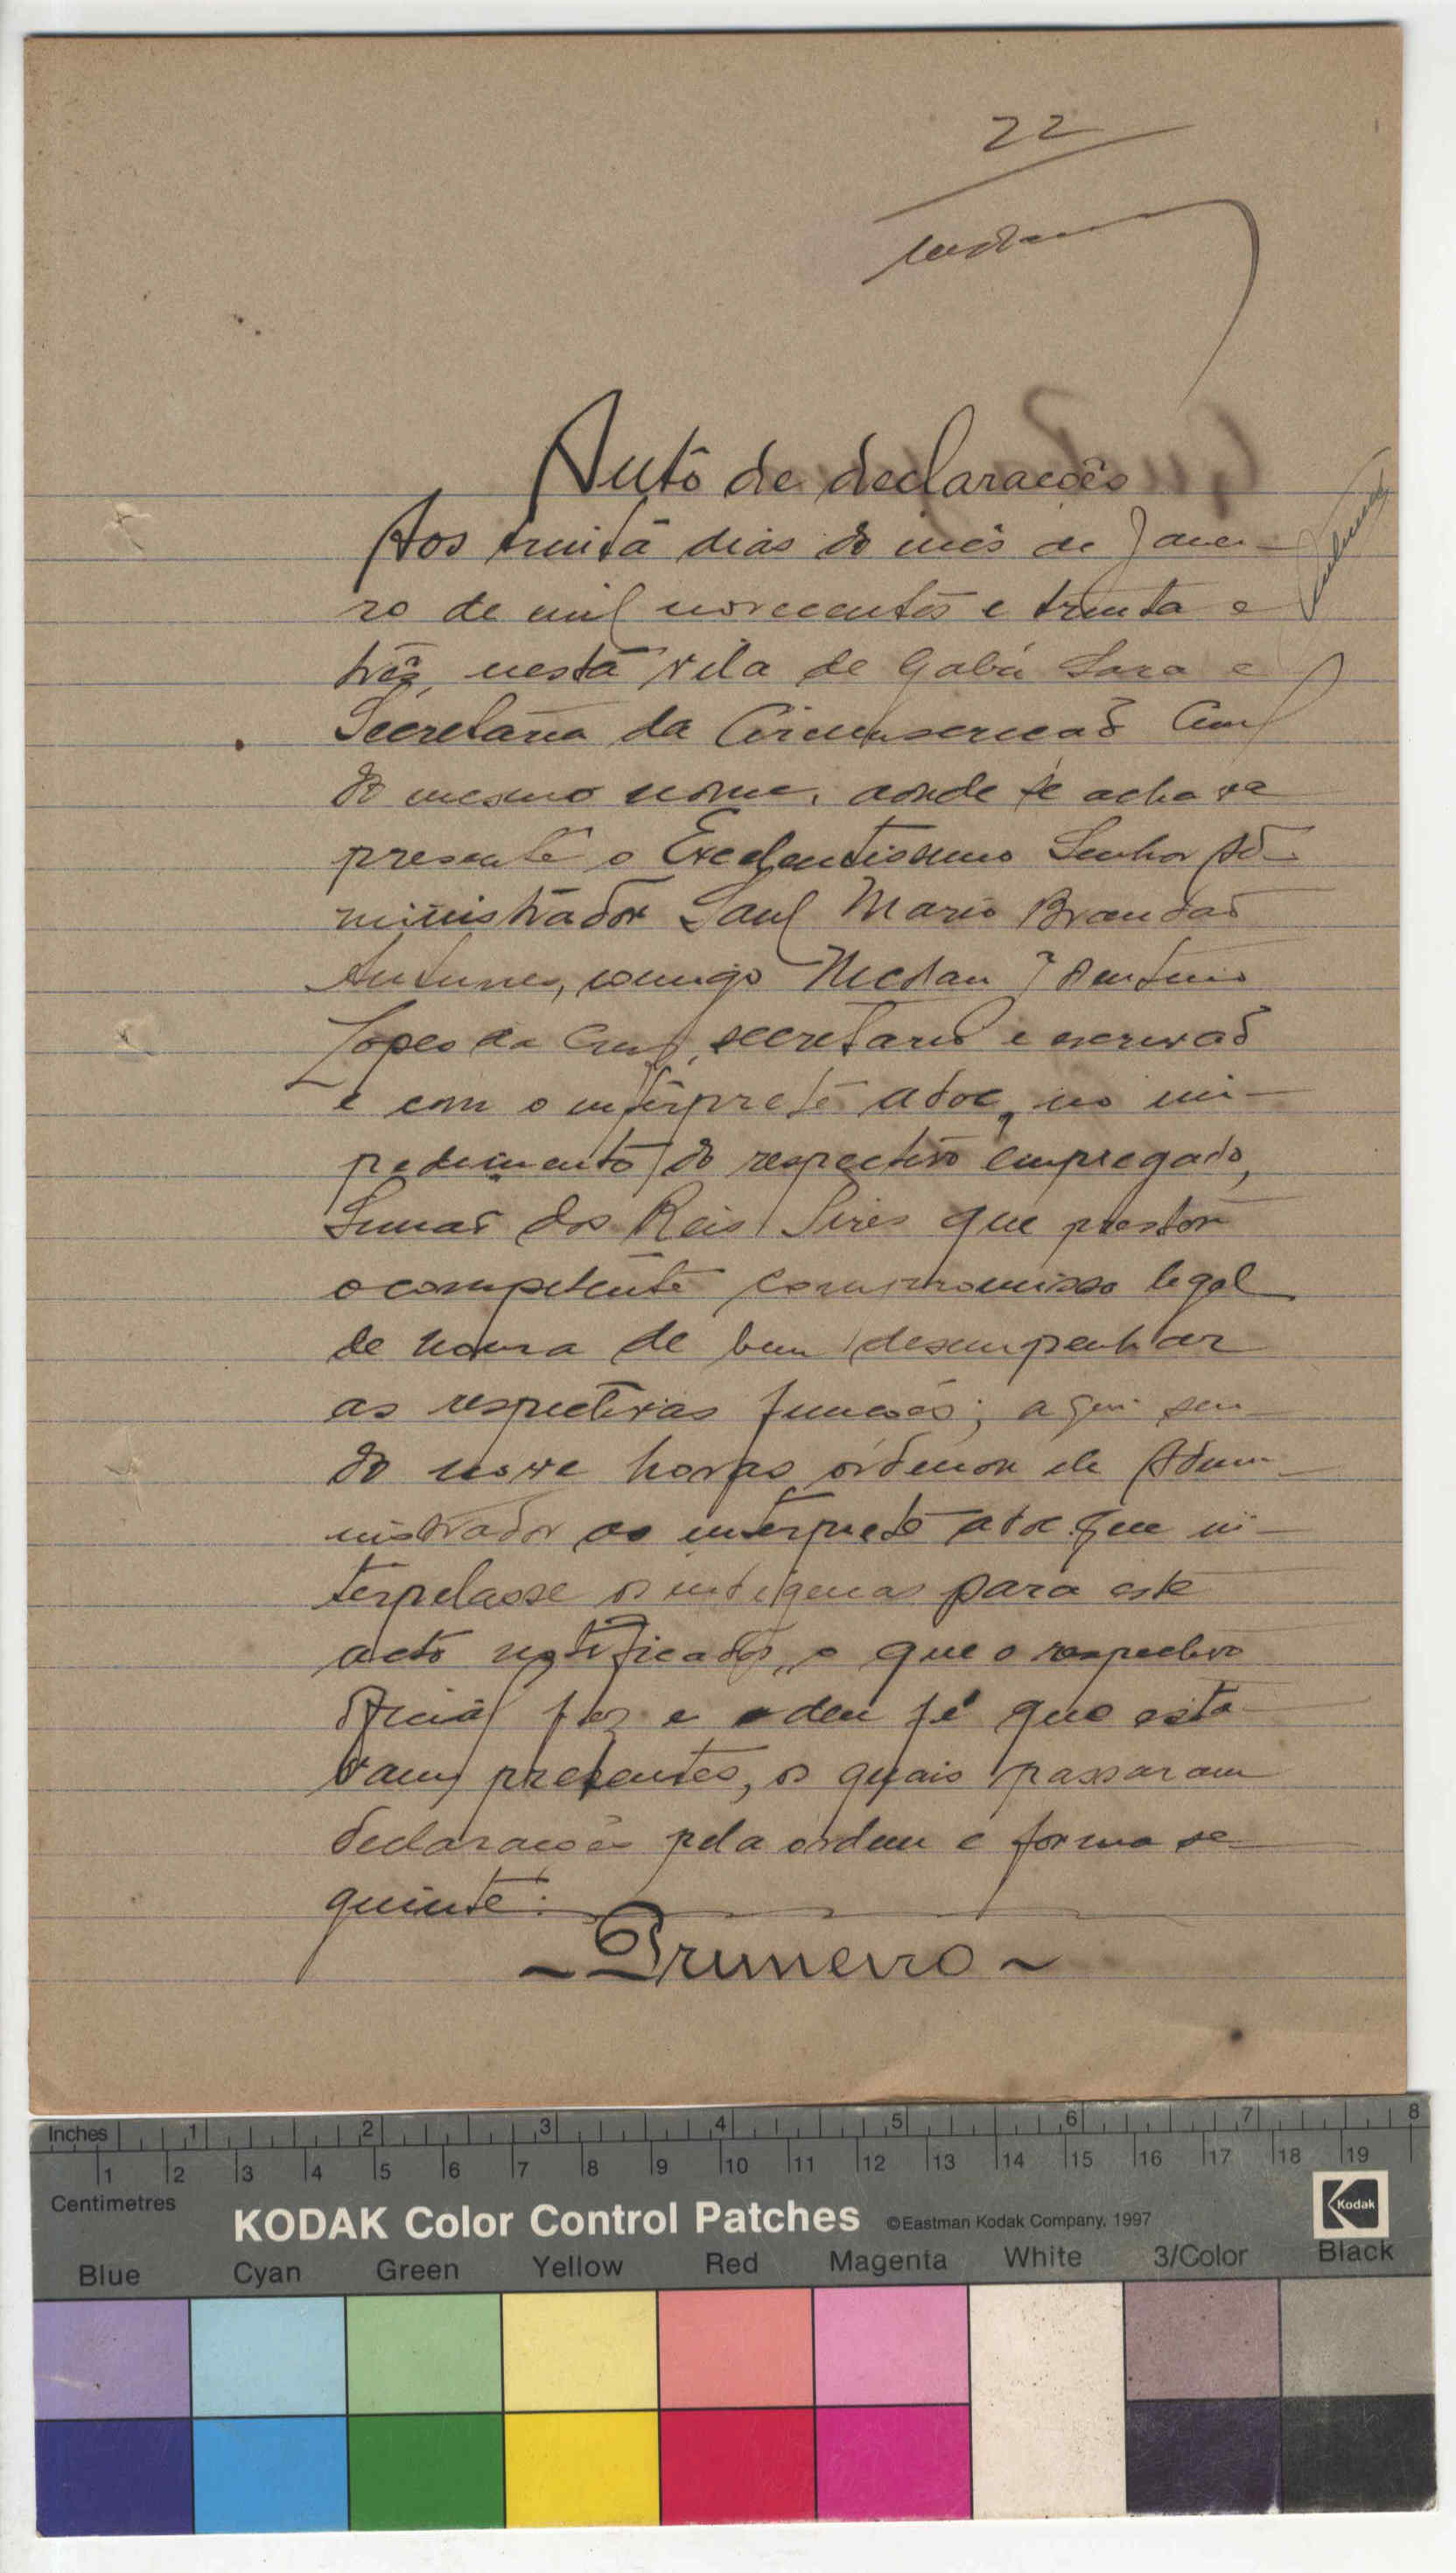 22
Autô de declaracoês
Aos trinta dias do mês de Janei-
ro de mil novecentos e trinta e
três, nesta vila de Gabú Sara e
Secretaria da Circunscrecaõ Civil
do mesmo nome, aonde se achava
presente o Excelentissimo Senhor Ad-
ministrador Saul Mario Brandaõ
Antunes, comigo
Lopes da Cruz, secretario e escrivaõ
e com o intérprete adoc, no im-
pedimento do respectivo empregado,
dos Reis Pires que prestou
o competente compromisso legal
de honra de bem desempenhar
as respectivas funcoês; aqui sen-
do nove horas órdenou ele Admi-
nistrador ao interprete adoc que in-
terpelasse os indigenas para este
acto notificados, o que o respectivo
oficial fez e deu fé que esta-
vam presentes, os quais passaram
declaracoês pela ordem e forma se-
guinte:
~ Primeiro ~
Inches 1 2 3 4 5 6 7 8
1 2 3 4 5 6 7 8 9 10 11 12 13 14 15 16 17 18 19
Centimetres
KODAK Color Control Patches ©Eastman Kodak Company, 1997 Kodak
Blue Cyan Green Yellow Red Magenta White 3/Color Black